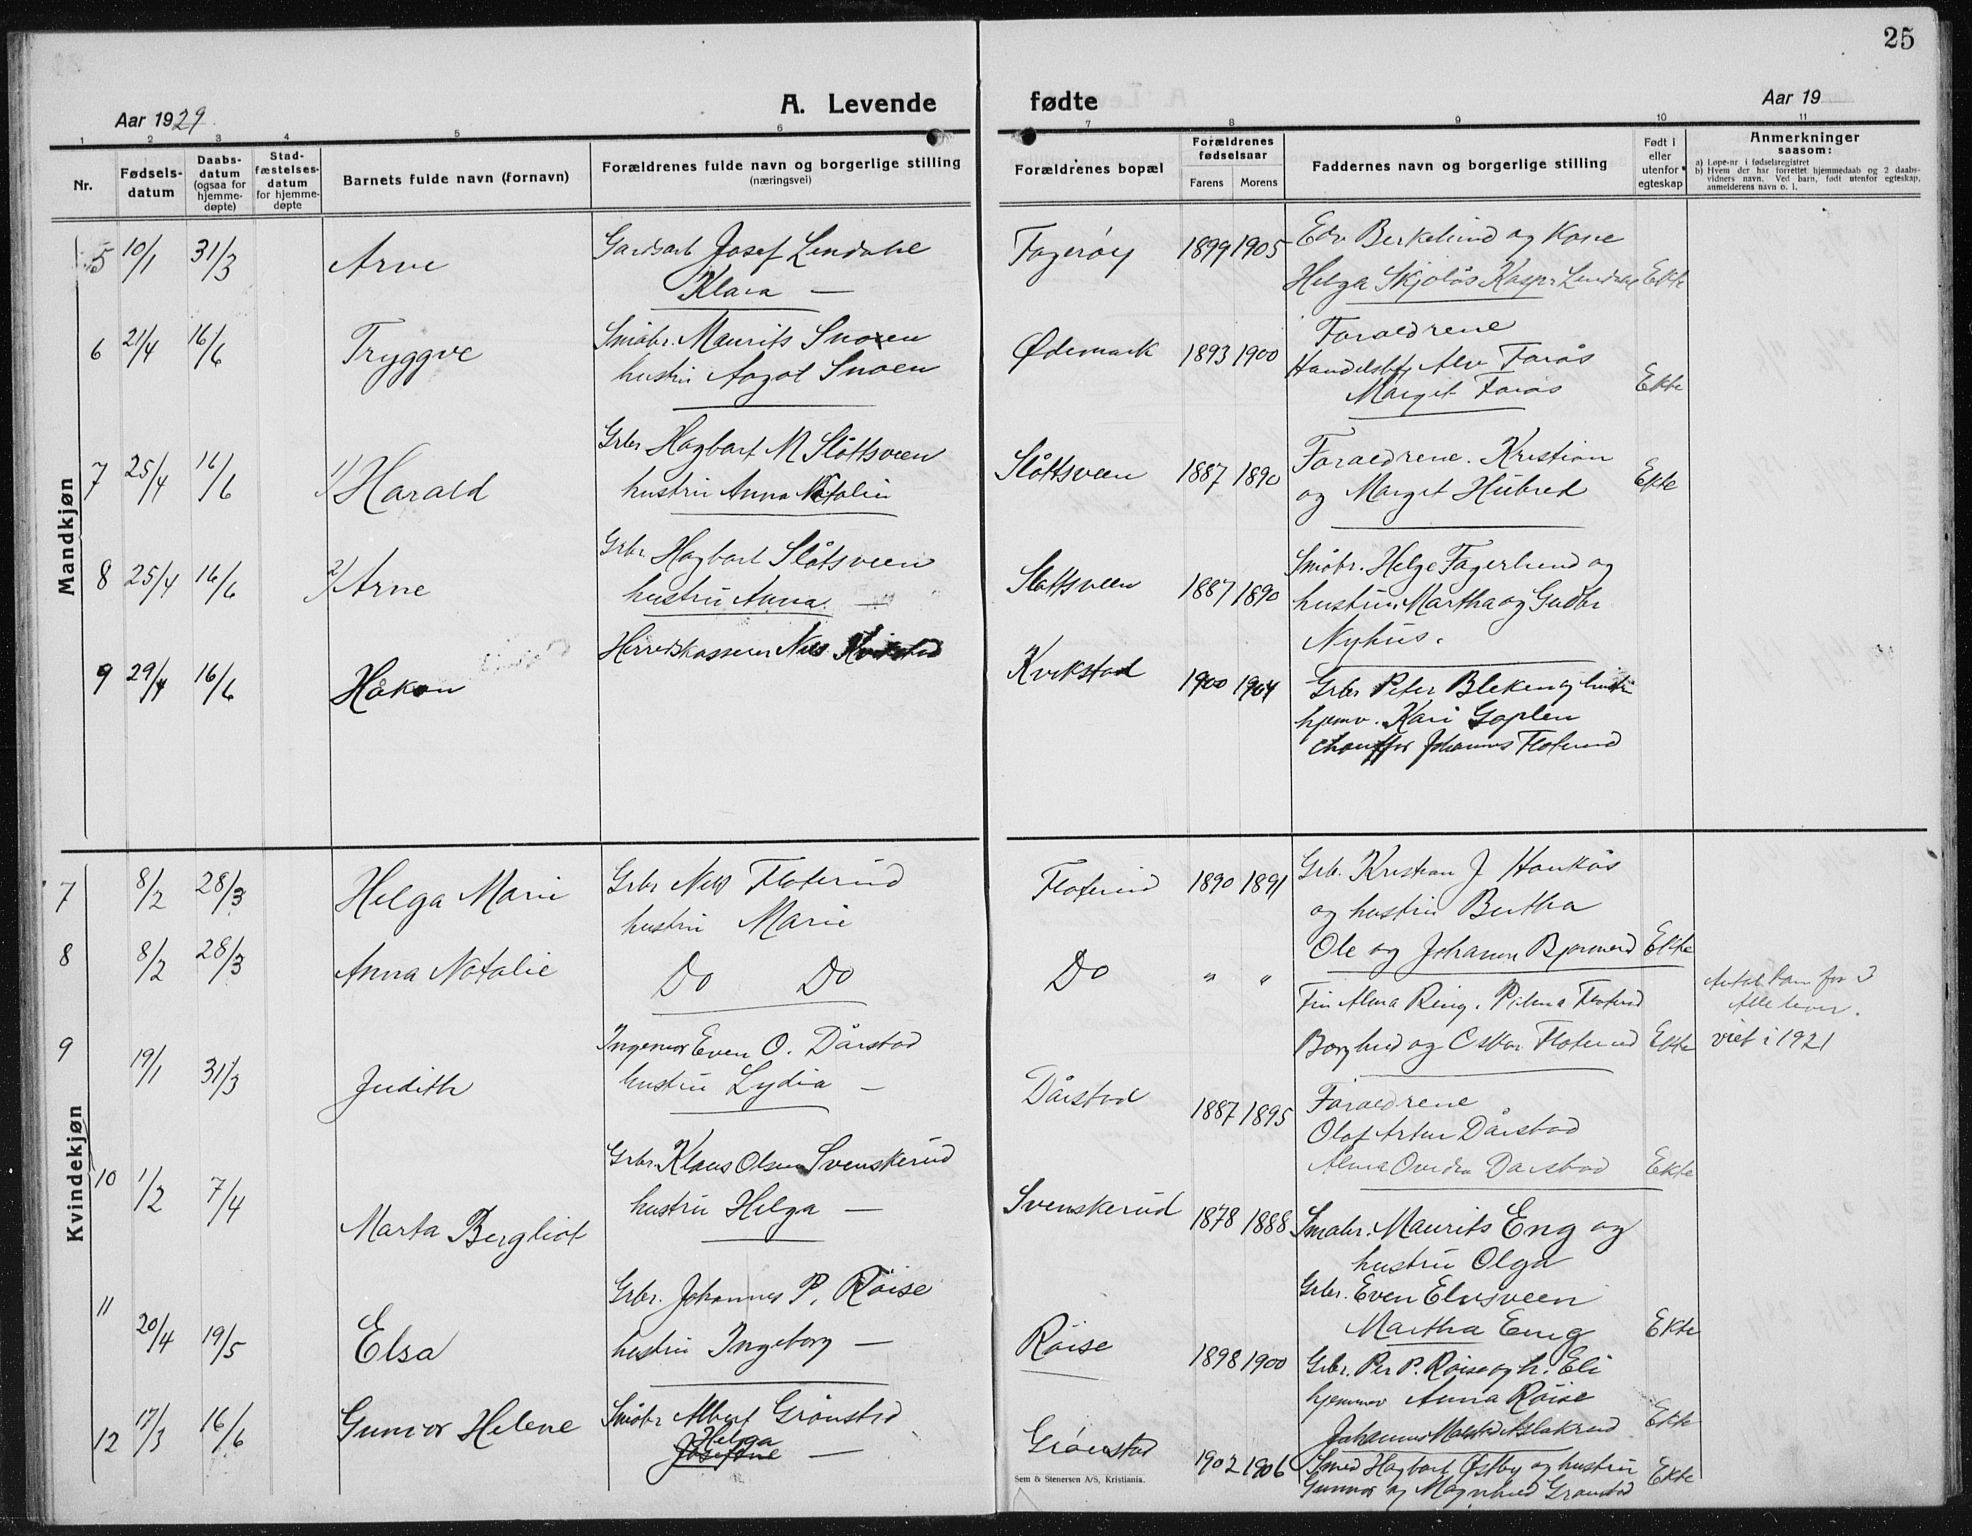 25
Aar 1929.
A. Levende
fødte
Aar 19
1 2 3 4 5 6 7 8 9 10 11
Nr.
Fødsels-
datum
Daabs-
datum
(ogsaa for
hjemme-
døpte)
Stad-
fæstelses-
datum
for hjemme-
døpte
Barnets fulde navn (fornavn)
Forældrenes fulde navn og borgerlige stilling
(næringsvei)
Forældrenes bopæl
Forældrenes
fødselsaar
Farens Morens
Faddernes navn og borgerlige stilling
Født i
eller
utenfor
egteskap
Anmerkninger
saasom:
a) Løpe-nr. i fødselsregistret
b) Hvem der har forrettet hjemmedaab og 2 daabs-
vidners navn. Ved barn, født utenfor egteskap,
anmelderens navn o. l.
Mandkjøn
5 10/1 31/3 Arve Gardsarb Josef Lindahl Fagerøy 1899 1905 Edv Berkelund og Kone
Klara — Helga Skjolås Kasper Lindahl Ekte
6 21/4 16/6 Tryggve Småbr. Maurits Snoen Ødemark 1893 1900 Foraldrene
hustru Aagot Snoen Handelsbf. Alv Forås
Margit Forås Ekte
7 25/4 16/6 1) Harald Grbr Hagbart M Slåttsveen Slåttsveen 1887 1890 Foraldrene. Kristian
hustru Anna Natalie og Margit Hubred Ekte
8 25/4 16/6 2) Arne Grbr Hagbart Slåtsveen Slottsveen 1887 1890 Småbr. Helge Fagerlund og
hustru Anna — hustru Martha og Gudbr
Nyhus.
9 29/4 16/6 Håkon Herredskasserer Nils Kvikstad Kvikstad 1900 1904 Grbr Peter Bleken og hustru
hjemv. Kari Goplen
chauffør Johannes Floterud
Kvindekjøn
7 8/2 28/3 Helga Marie Grbr Nils Floterud Floterud 1890 1891 Grb. Kristian J Haukås
hustru Marie og hustru Bertha
Ole og Johanne Bjørnerud Ekte
8 8/2 28/3 Anna Natalie Do Do Do " " Frn Alma Ring. Palma Floterud
Borghild og Oskar Floterud Ekte
Antal barn før 3
Alle lever.
viet i 1921
9 19/1 31/3 Judith Ingeniør Even O. Dårstad Dårstad 1887 1895 Foraldrene
hustru Lydia — Olaf Artur Dårstad
Alma Ovidia Dårstad Ekte
10 1/2 7/4 Marta Bergliot Grbr. Klaus Olsen Svenskerud Svenskerud 1878 1888 Småbr. Maurits Eng og
hustru Helga — hustru Olga
Grbr. Even Elvsveen
Martha Eng Ekte
11 20/4 19/5 Elsa Grbr. Johannes P. Røise Røise 1898 1900 Grbr. Per P. Røise og h. Eli
hustru Ingeborg — hjemmev Anna Røise
Johannes Aslakrud Ekte
12 17/3 16/6 Gunvor Helene Småbr Albert Grønstad Grønstad 1902 1906 Smed Hagbart Østby og hustru
Helga
Josefine — Gunvor og Magnhild Grønstad Ekte
Sem & Stenersen A/S, Kristiania.